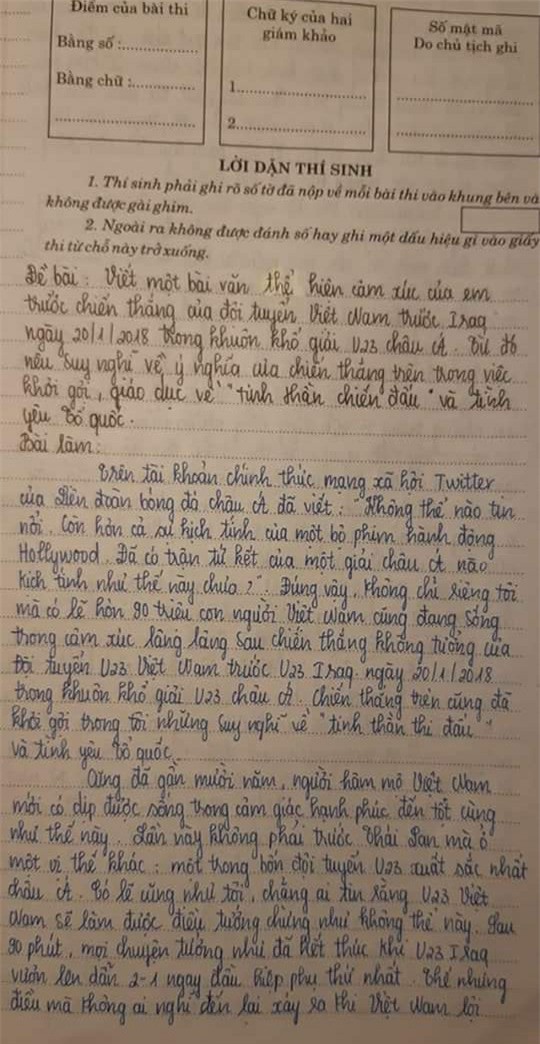 Điểm của bài thi
Bằng số :
Bằng chữ :
Chữ ký của hai
giám khảo
1
2
Số mật mã
Do chủ tịch ghi
LỜI DẶN THÍ SINH
1. Thí sinh phải ghi rõ số tờ đã nộp về mỗi bài thi vào khung bên và
không được gài ghim.
2. Ngoài ra không được đánh số hay ghi một dấu hiệu gì vào giấy
thi từ chỗ này trở xuống.
Đề bài : Viết một bài văn thể hiện cảm xúc của em
trước chiến thắng của đội tuyển Việt Nam trước Iraq
ngày 20/1/2018 trong khuôn khổ giải U23 châu Á. Từ đó
nêu suy nghĩ về ý nghĩa của chiến thắng trên trong việc
khơi gợi, giáo dục về "tinh thần chiến đấu" và tình
yêu Tổ quốc.
Bài làm:
Trên tài khoản chính thức mạng xã hội Twitter
của Liên đoàn bóng đá châu Á đã viết : "Không thể nào tin
nổi. Còn hơn cả sự kịch tính của một bộ phim hành động
Hollywood. Đã có trận tứ kết của một giải châu Á nào
kịch tính như thế này chưa ?". Đúng vậy, không chỉ riêng tôi
mà có lẽ hơn 90 triệu con người Việt Nam cũng đang sống
trong cảm xúc lâng lâng sau chiến thắng không tưởng của
đội tuyển U23 Việt Nam trước U23 Iraq ngày 20/1/2018
trong khuôn khổ giải U23 châu Á. Chiến thắng trên cũng đã
khơi gợi trong tôi những suy nghĩ về "tinh thần thi đấu"
và tình yêu Tổ quốc.
Cũng đã gần mười năm, người hâm mộ Việt Nam
mới có dịp được sống trong cảm giác hạnh phúc đến tột cùng
như thế này. Lần này không phải trước Thái Lan mà ở
một vị thế khác : một trong bốn đội tuyển U23 xuất sắc nhất
châu Á. Có lẽ cũng như tôi, chẳng ai tin rằng U23 Việt
Nam sẽ làm được điều tưởng chừng như không thể này. Sau
90 phút, mọi chuyện tưởng như đã kết thúc khi U23 Iraq
vươn lên dẫn 2-1 ngay đầu hiệp phụ thứ nhất. Thế nhưng
điều mà không ai nghĩ đến lại xảy ra khi Việt Nam lội